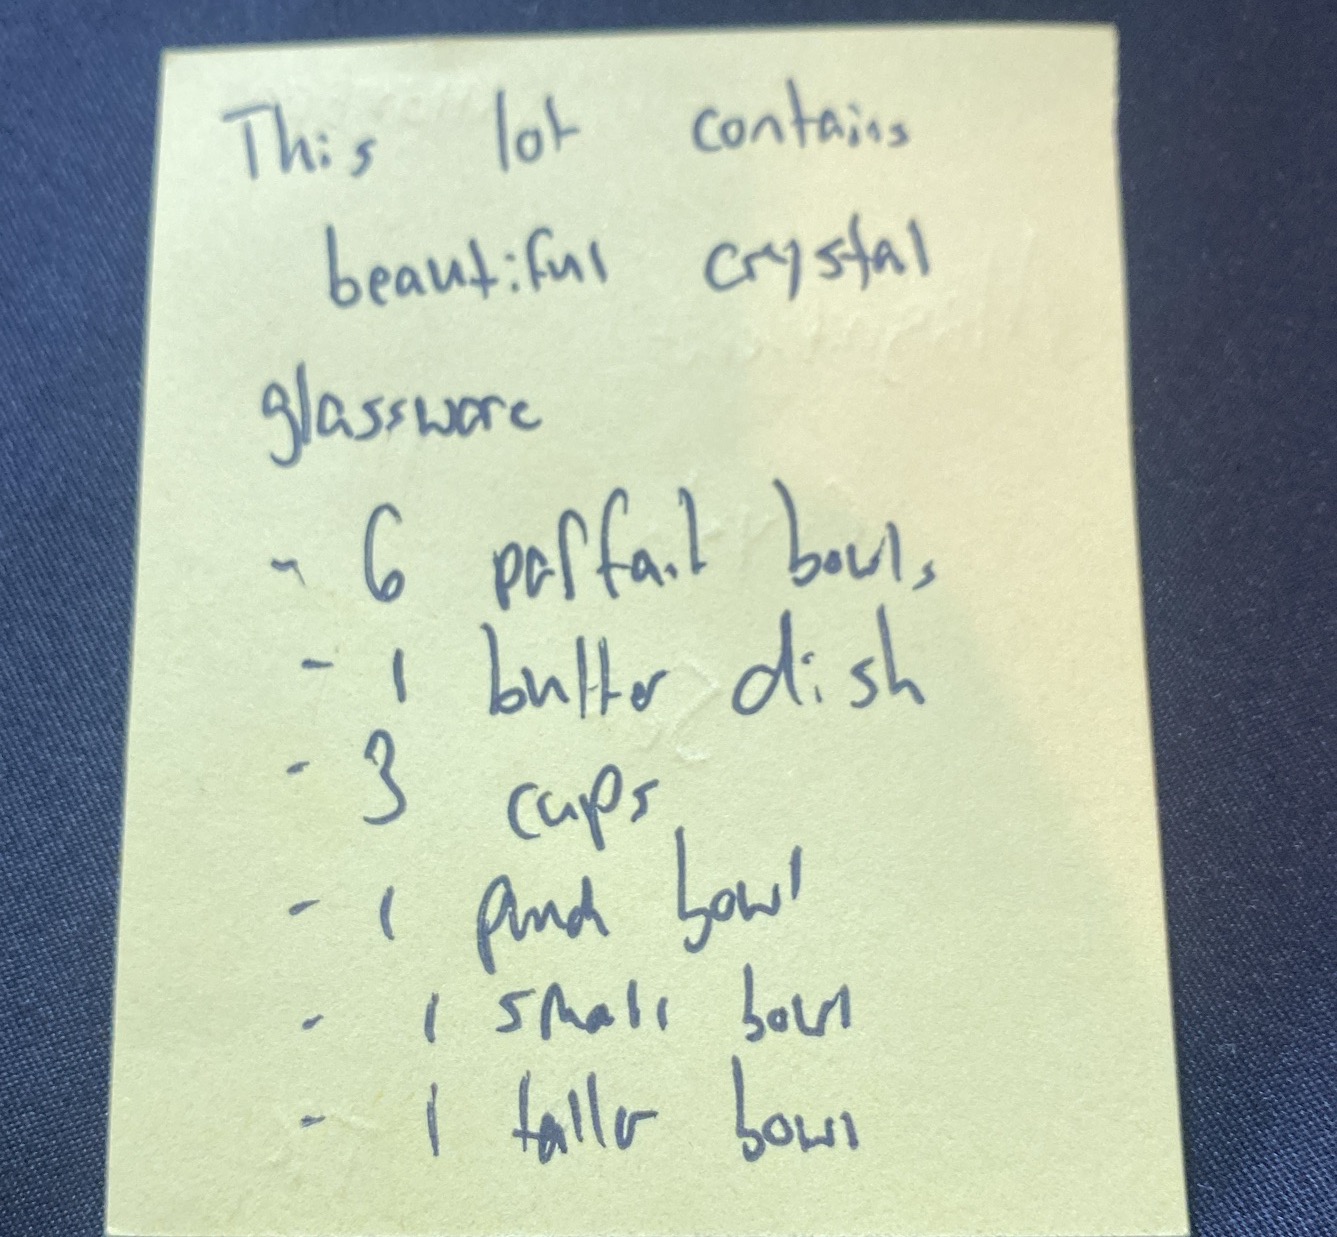 This lot contains
beautiful crystal
glassware
- 6 parfait bowls
- 1 butter dish
- 3 cups
- 1 punch bowl
- 1 small bowl
- 1 taller bowl